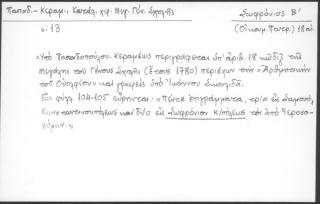 Παπαδ.-Κεραμ.: Κατάλ. χφ. Μεγ. Γέν. Σχολῆς
Σωφρόνιος Β'
σ. 13
(Οἰκουμ. Πατρ.) 18αι.
«Ὑπό Παπαδοπούλου-Κεραμέως περιγράφεται ὑπ' ἀριθ. 18 κῶδιξ τῆς
Μεγάλης τοῦ Γένους Σχολῆς (ἔτους 1780) περιέχων τήν «Ἀριθμητικήν
τοῦ Οὐολφίου» καί γραφείς ὑπό Ἰωάννου
Εἰς φύλλ. 104-105 εὕρηνται: «Πέντε ἐπιγράμματα, τρία εἰς Σαμουήλ
Κωνσταντινουπόλεως καί δύο εἰς Σωφρόνιον Κ/πόλεως τόν ἀπό Ἱεροσο-
λύμων.»